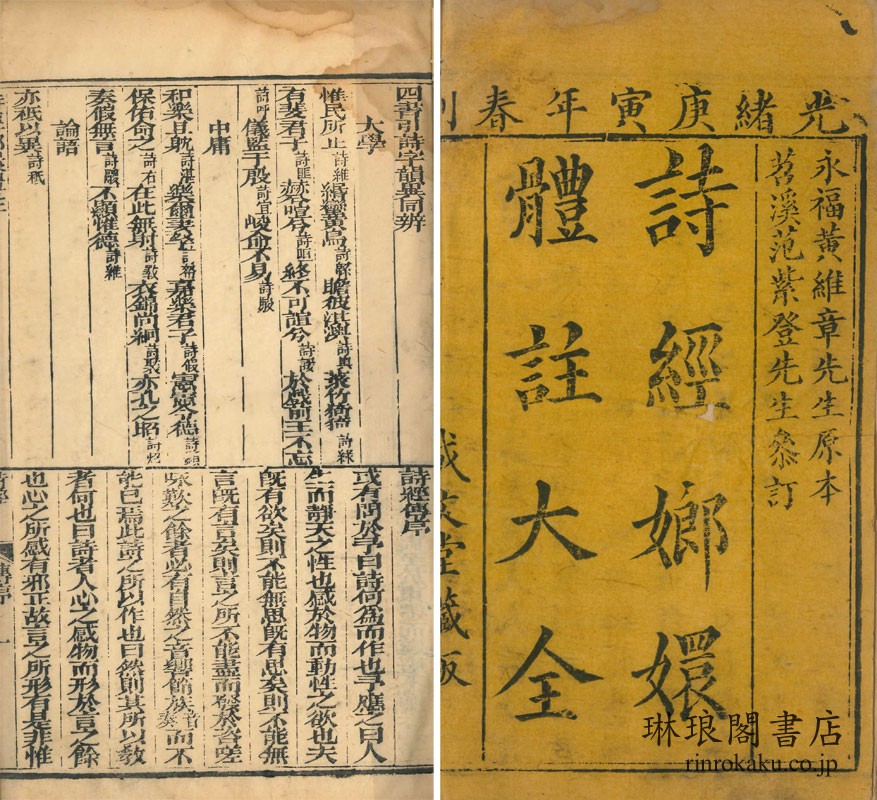 光緒庚寅年春刊
永福黃維章先生原本
苕溪范紫登先生叅訂
詩經嫏嬛
體註大全
成文堂藏板
四書引詩字韻異同辨
大學
惟民所止詩維 緡蠻黃鳥詩緜 瞻彼淇澳詩奧 菉竹猗猗詩綠
有斐君子詩匪 赫喧兮詩咺 終不可諠兮詩諼 於戲前王不忘
詩呼 儀監于殷詩宜 峻命不易詩駿
中庸
和樂且耽詩湛 樂爾妻孥詩帑 嘉樂君子詩假 憲憲令德詩顯
保佑命之詩右 在此無射詩斁 衣錦尚絅詩褧 亦孔之昭詩炤
奏假無言詩鬷 不顯惟德詩維
論語
亦祗以異詩祇
詩經傳序
或有問於予曰詩何為而作也予應之曰人
生而靜天之性也感於物而動性之欲也夫
既有欲矣則不能無思既有思矣則不能無
言既有言矣則言之所不能盡而發於咨嗟
咏歎之餘者必有自然之音響節族音奏而不
能已焉此詩之所以作也曰然則其所以教
者何也曰詩者人心之感物而形於言之餘
也心之所感有邪正故言之所形有是非惟
琳琅閣書店
rinrokaku.co.jp